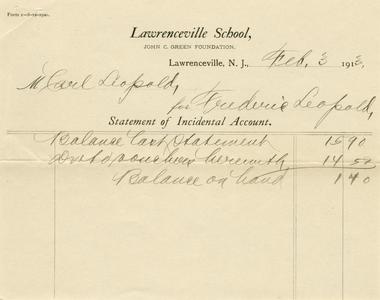 Lawrenceville School,
JOHN C. GREEN FOUNDATION.
Lawrenceville, N. J., Feb. 3 1913
Mr Carl Leopold,
for Frederic Leopold,
Statement of Incidental Account.
Balance last Statement 15 90
vouchers herewith 14 50
Balance on hand 1 40